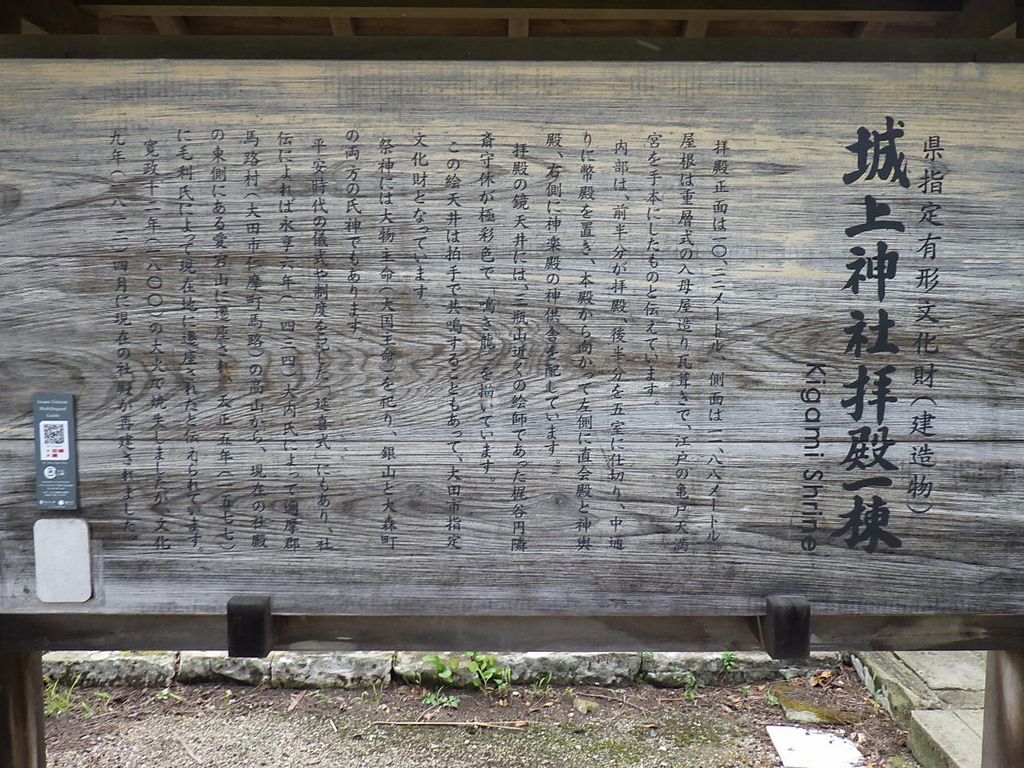 県指定有形文化財(建造物)
城上神社拝殿一棟
Kigami Shrine
拝殿正面は一〇、三二メートル、側面は一一、八八メートル。
屋根は重層式の入母屋造り瓦葺きで、江戸の亀戸天満
宮を手本にしたものと伝えています。
内部は、前半分が拝殿、後半分を五室に仕切り、中通
りに幣殿を置き、本殿から向かって左側に直会殿と神輿
殿、右側に神楽殿の神供舎を配しています。
拝殿の鏡天井には、三瓶山近くの絵師であった梶谷円隣
斎守休が極彩色で「鳴き龍」を描いています。
この絵天井は拍手で共鳴することもあって、大田市指定
文化財となっています。
祭神には大物主命(大国主命)を祀り、銀山と大森町
の両方の氏神でもあります。
平安時代の儀式や制度を記した「延喜式」にもあり、社
伝によれば永享六年(一四三四)大内氏によって邇摩郡
馬路村(大田市仁摩町馬路)の高山から、現在の社殿
の東側にある愛宕山に遷座され、天正五年(一五七七)
に毛利氏によって現在地に遷座されたと伝えられています。
寛政十二年(一八〇〇)の大火で焼失しましたが、文化
九年(一八一二)四月に現在の社殿が再建されました。
Iwami Ginzan
Multilingual
Guide